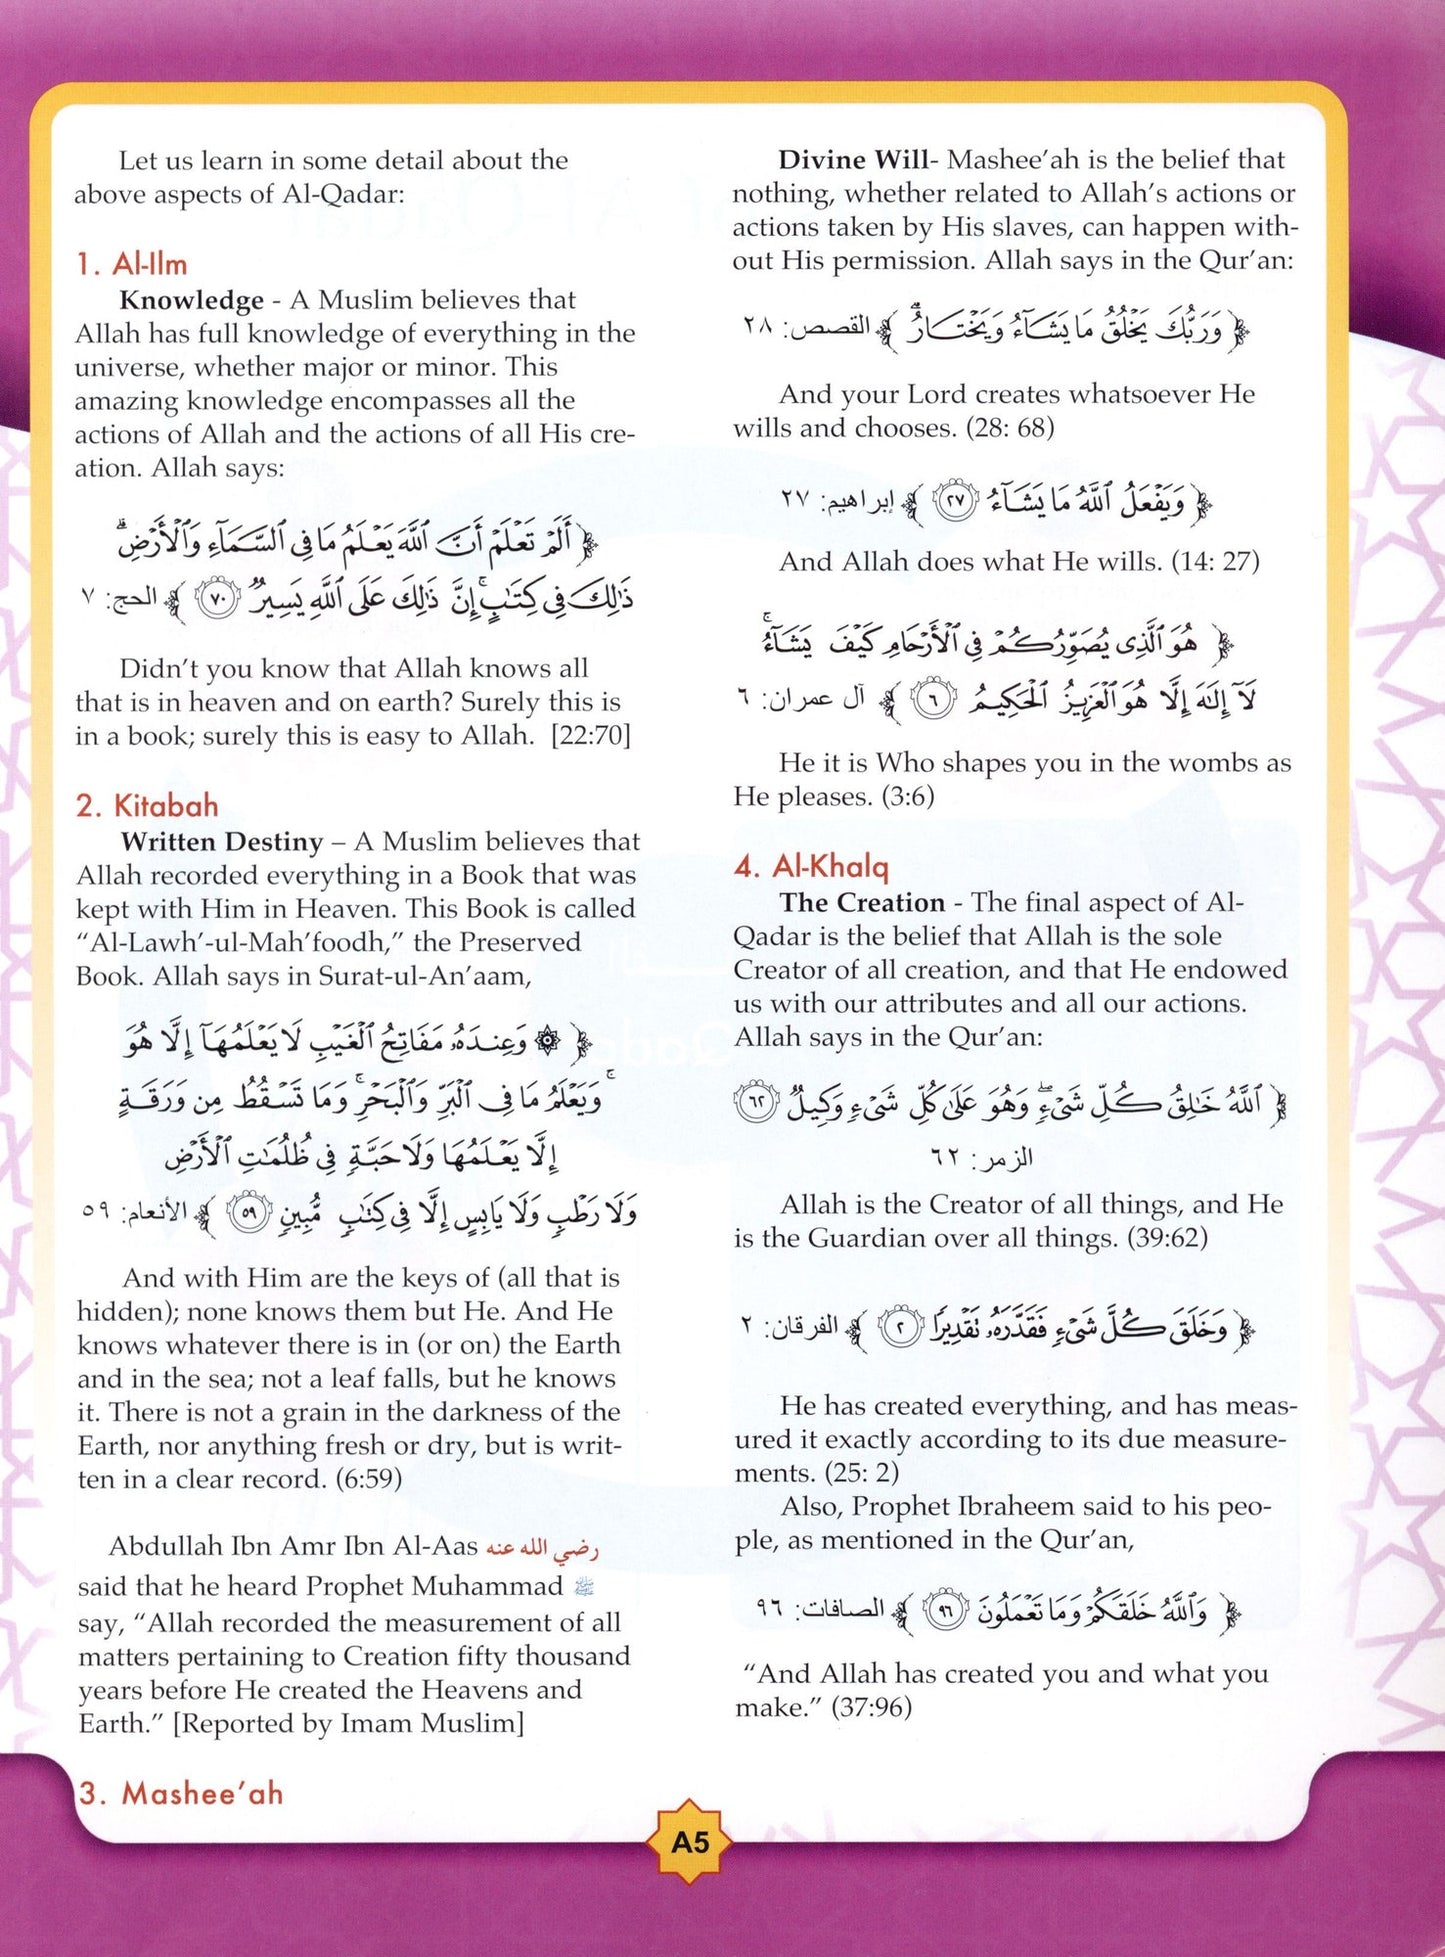 Let us learn in some detail about the
above aspects of Al-Qadar:
1. Al-Ilm
Knowledge - A Muslim believes that
Allah has full knowledge of everything in the
universe, whether major or minor. This
amazing knowledge encompasses all the
actions of Allah and the actions of all His cre-
ation. Allah says:
﴿ أَلَمْ تَعْلَمْ أَنَّ ٱللَّهَ يَعْلَمُ مَا فِى ٱلسَّمَآءِ وَٱلْأَرْضِ ۗ
ذَٰلِكَ فِى كِتَٰبٍ ۚ إِنَّ ذَٰلِكَ عَلَى ٱللَّهِ يَسِيرٌ ٧٠ ﴾ الحج: ٧
Didn't you know that Allah knows all
that is in heaven and on earth? Surely this is
in a book; surely this is easy to Allah. [22:70]
2. Kitabah
Written Destiny – A Muslim believes that
Allah recorded everything in a Book that was
kept with Him in Heaven. This Book is called
“Al-Lawh’-ul-Mah’foodh,” the Preserved
Book. Allah says in Surat-ul-An’aam,
﴿ ۞ وَعِندَهُۥ مَفَاتِحُ ٱلْغَيْبِ لَا يَعْلَمُهَآ إِلَّا هُوَ ۚ
وَيَعْلَمُ مَا فِى ٱلْبَرِّ وَٱلْبَحْرِ ۚ وَمَا تَسْقُطُ مِن وَرَقَةٍ
إِلَّا يَعْلَمُهَا وَلَا حَبَّةٍ فِى ظُلُمَٰتِ ٱلْأَرْضِ
وَلَا رَطْبٍ وَلَا يَابِسٍ إِلَّا فِى كِتَٰبٍ مُّبِينٍ ٥٩ ﴾ الأنعام: ٥٩
And with Him are the keys of (all that is
hidden); none knows them but He. And He
knows whatever there is in (or on) the Earth
and in the sea; not a leaf falls, but he knows
it. There is not a grain in the darkness of the
Earth, nor anything fresh or dry, but is writ-
ten in a clear record. (6:59)
Abdullah Ibn Amr Ibn Al-Aas رضي الله عنه
said that he heard Prophet Muhammad ﷺ
say, “Allah recorded the measurement of all
matters pertaining to Creation fifty thousand
years before He created the Heavens and
Earth.” [Reported by Imam Muslim]
3. Mashee’ah
Divine Will- Mashee’ah is the belief that
nothing, whether related to Allah’s actions or
actions taken by His slaves, can happen with-
out His permission. Allah says in the Qur’an:
﴿ وَرَبُّكَ يَخْلُقُ مَا يَشَآءُ وَيَخْتَارُ ۗ ﴾ القصص: ٢٨
And your Lord creates whatsoever He
wills and chooses. (28: 68)
﴿ وَيَفْعَلُ ٱللَّهُ مَا يَشَآءُ ٢٧ ﴾ إبراهيم: ٢٧
And Allah does what He wills. (14: 27)
﴿ هُوَ ٱلَّذِى يُصَوِّرُكُمْ فِى ٱلْأَرْحَامِ كَيْفَ يَشَآءُ ۚ
لَآ إِلَٰهَ إِلَّا هُوَ ٱلْعَزِيزُ ٱلْحَكِيمُ ٦ ﴾ آل عمران: ٦
He it is Who shapes you in the wombs as
He pleases. (3:6)
4. Al-Khalq
The Creation - The final aspect of Al-
Qadar is the belief that Allah is the sole
Creator of all creation, and that He endowed
us with our attributes and all our actions.
Allah says in the Qur’an:
﴿ ٱللَّهُ خَٰلِقُ كُلِّ شَىْءٍ ۖ وَهُوَ عَلَىٰ كُلِّ شَىْءٍ وَكِيلٌ ٦٢
الزمر: ٦٢
Allah is the Creator of all things, and He
is the Guardian over all things. (39:62)
﴿ وَخَلَقَ كُلَّ شَىْءٍ فَقَدَّرَهُۥ تَقْدِيرًا ٢ ﴾ الفرقان: ٢
He has created everything, and has meas-
ured it exactly according to its due measure-
ments. (25: 2)
Also, Prophet Ibraheem said to his peo-
ple, as mentioned in the Qur’an,
﴿ وَٱللَّهُ خَلَقَكُمْ وَمَا تَعْمَلُونَ ٩٦ ﴾ الصافات: ٩٦
“And Allah has created you and what you
make.” (37:96)
A5